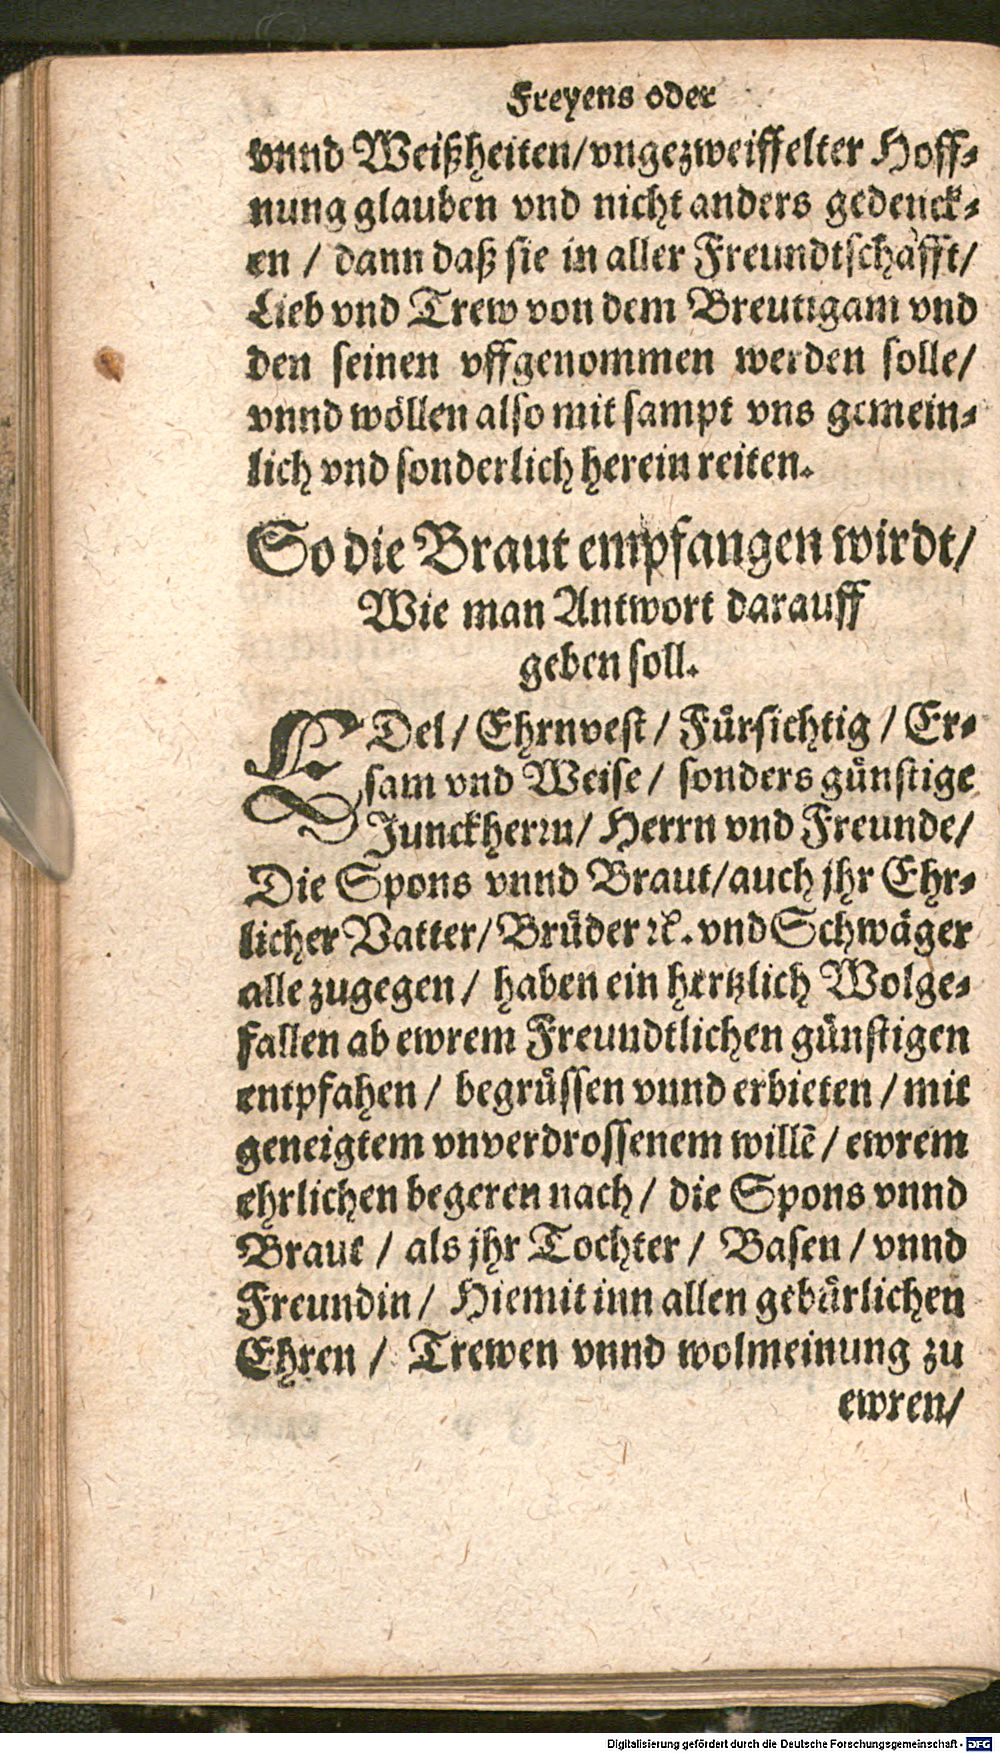 Freyens oder
vnnd Weißheiten/vngezweiffelter Hoff⸗
nung glauben vnd nicht anders gedenck⸗
en / dann daß sie in aller Freundtschafft/
Lieb vnd Trew von dem Breutigam vnd
den seinen vffgenommen werden solle/
vnnd wöllen also mit sampt vns gemein⸗
lich vnd sonderlich herein reiten.
So die Braut empfangen wirdt/
Wie man Antwort darauff
geben soll.
EDel / Ehrnvest / Fürsichtig / Er⸗
sam vnd Weise / sonders günstige
Junckherrn/ Herrn vnd Freunde/
Die Spons vnnd Braut/auch jhr Ehr⸗
licher Vatter/ Brüder ꝛc. vnd Schwäger
alle zugegen / haben ein hertzlich Wolge⸗
fallen ab ewrem Freundtlichen günstigen
entpfahen / begrüssen vnnd erbieten / mit
geneigtem vnverdrossenem willē / ewrem
ehrlichen begeren nach / die Spons vnnd
Braut / als jhr Tochter / Basen / vnnd
Freundin / Hiemit inn allen gebürlichen
Ehren / Trewen vnnd wolmeinung zu
ewren/
Digitalisierung gefördert durch die Deutsche Forschungsgemeinschaft - DFG